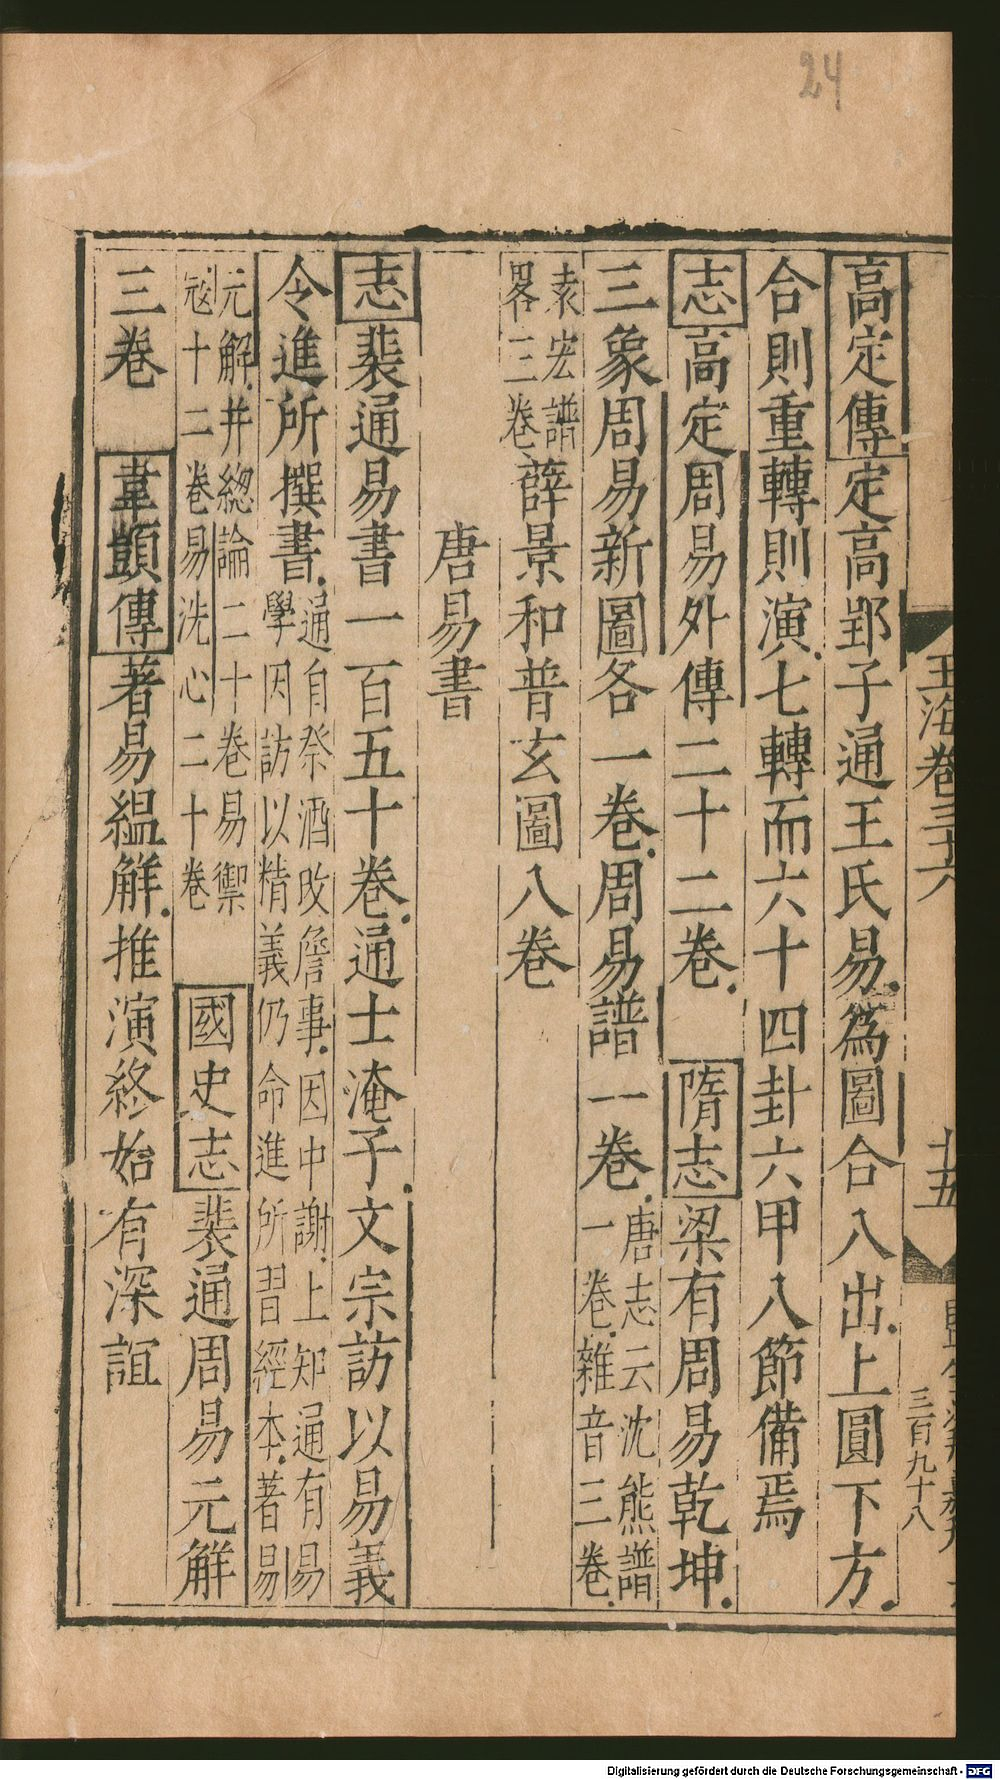 24
玉海卷三十六
十五
三百九十八
高定傳定高郢子通王氏易爲圖合入出上圓下方
合則重轉則演七轉而六十四卦六甲八節備焉
志高定周易外傳二十二卷 隋志梁有周易乾坤
三象周易新圖各一卷周易譜一卷唐志云沈熊譜
一卷雜音三卷
袁宏譜
畧三卷薛景和普玄圖八卷
唐易書
志裴通易書一百五十卷通士淹子文宗訪以易義
令進所撰書通自祭酒改詹事因中謝上知通有易
學因訪以精義仍命進所習經本著易
元解并總論二十卷易禦
寇十二卷易洗心二十卷 國史志裴通周易元解
三卷 韋顗傳著易縕解推演終始有深誼
Digitalisierung gefördert durch die Deutsche Forschungsgemeinschaft - DFG